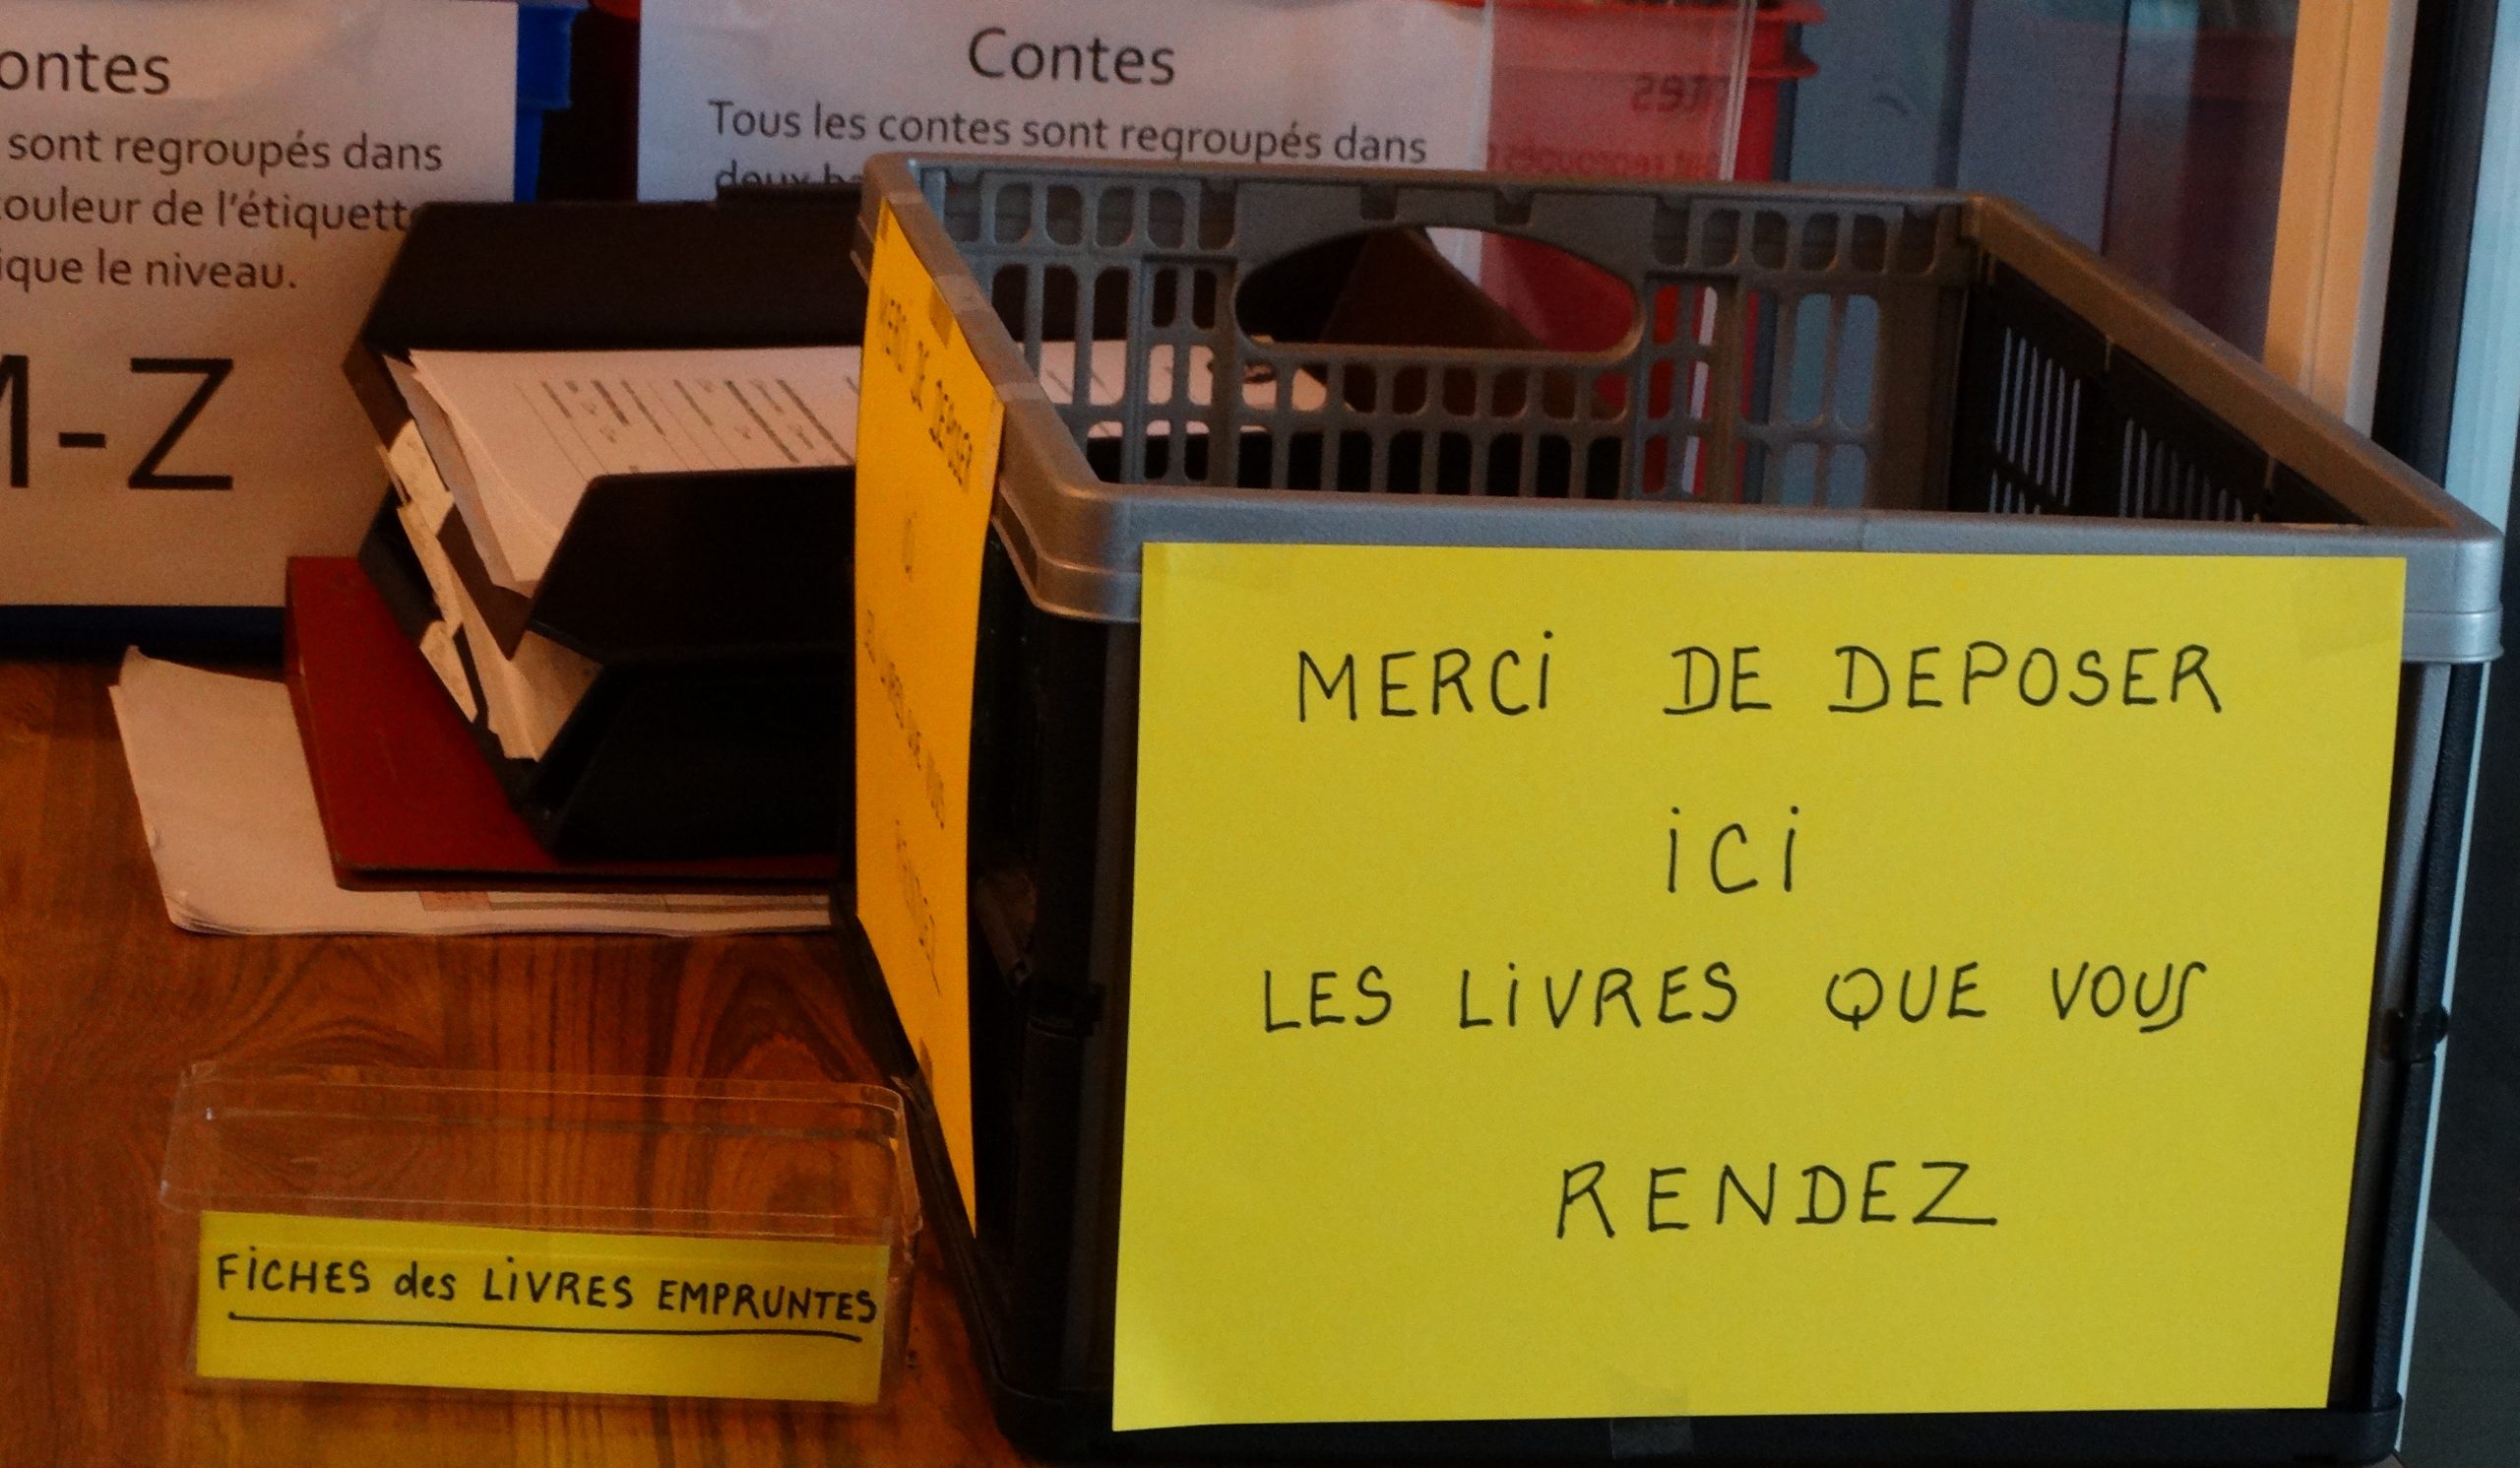 ontes
sont regroupés dans
couleur de l'étiquette
ique le niveau.
M-Z
Contes
Tous les contes sont regroupés dans
deux
MERCI DE DEPOSER
ICI
LES LIVRES QUE VOUS
RENDEZ
MERCi DE DEPOSER
iCi
LES LiVRES QUE VOUS
RENDEZ
FiCHES des LiVRES EMPRUNTES